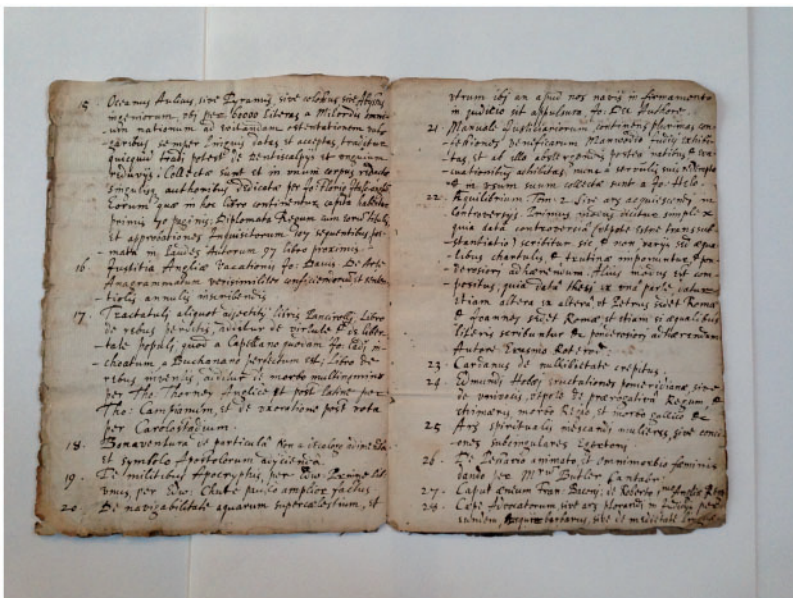 15. Oceanus Aulicus, sive Pyramis, sive colossus sive Abyssus
ingeniorum, ubi per 60000 literas a Milordis omni-
um nationum ad vitandam ostentationem vul-
garibus semper linguis datas et acceptas, traditur
quicquid tradi potest de Dentiscalpiis et unguium
reduviis: Collecta sunt et in unum corpus redacta
singulisque authoribus dedicata per Jo: Florio Italo-anglū
Eorum quæ in hoc libro continentur capita habentur
primis 70 paginis; Diplomata Regum cum titulis
et approbationes Inquisitorum 107 sequentibus; poë-
mata in Laudes Autorum 97 libro proximis
16. Justitia Angliæ Vacationis Jo: Davis De Arte
Anagrammatum verisimiliter conficiendorum et sente-
tiolis annulis inscribendis
17. Tractatulus aliquot adjectitius libris Pancirolli; Libro
de rebus perditis, additur de virtute & de liber-
tate populi, quod a Capellano quodam Jo: Cadi in-
-choatum, a Buchanano perfectum est; Libro de
rebus inventis, additur de morbo multinomino
per Tho: Thorney Anglice et post latine per
Tho: Campianum, et de uxoratione post vota
per Carolostadium.
18. Bonaventura de particula Non a decalogo adimenda
et symbolo Apostolorum adjicienda.
19. De militibus Apocryphis, per Edw: Prinne li-
unus, per Edw: Chute paulo amplior factus
20. De navigabilitate aquarum supercælestium, et
utrum ibi an apud nos navis in firmamento
in judicio sit appulsura, Jo: Dee Authore.
21. Manuale Justiciariorum continens plurimas con-
fessiones Veneficarum Manwoodio exhibi-
tas, et ab illo abstergendis postea natibus & eva-
cuationibus adhibitas; nunc a servulis suis redempta
& in usum suum collecta sunt a Jo: Helo.
22. Æquilibrium Tom: 2. sive ars acquiescendi in
Controversiis. Primus modus dicitur simplex
quia data controversia (utpote estne transub-
stantiatio) scribitur sic, & non pariis sed æqua-
libus chartulis, & trutinæ imponuntur, & pon-
derosiori adhærendum; Alius modus est com-
positus, quia data thesi ex una parte, datur
etiam altera ex altera, ut Petrus sedet Romæ
& Joannes sedet Romæ, et etiam si æqualibus
literis scribuntur &c ponderosiori adhærendum
Autore Erasmo Roterod:
23. Cardanus de nullibietate crepitus.
24. Edmundi Hoboi eructationes pomeridianæ, sive
de univocis, utpote de prærogativa Regum, &
chimæris, morbo Regio, et morbo gallico &c
25. Ars spiritualis inescandi mulieres, sive conci-
ones subcingulares Egertoni
26. De Pessario animato, et omni morbo fæminis
dando per Mrum Butler Cantabr:
27. Caput æneum Fran: Baconi; de Roberto 1mo Angliæ Rege
28. Cape Advocatorum, sive ars plorandi in Judiciis per
eundem,